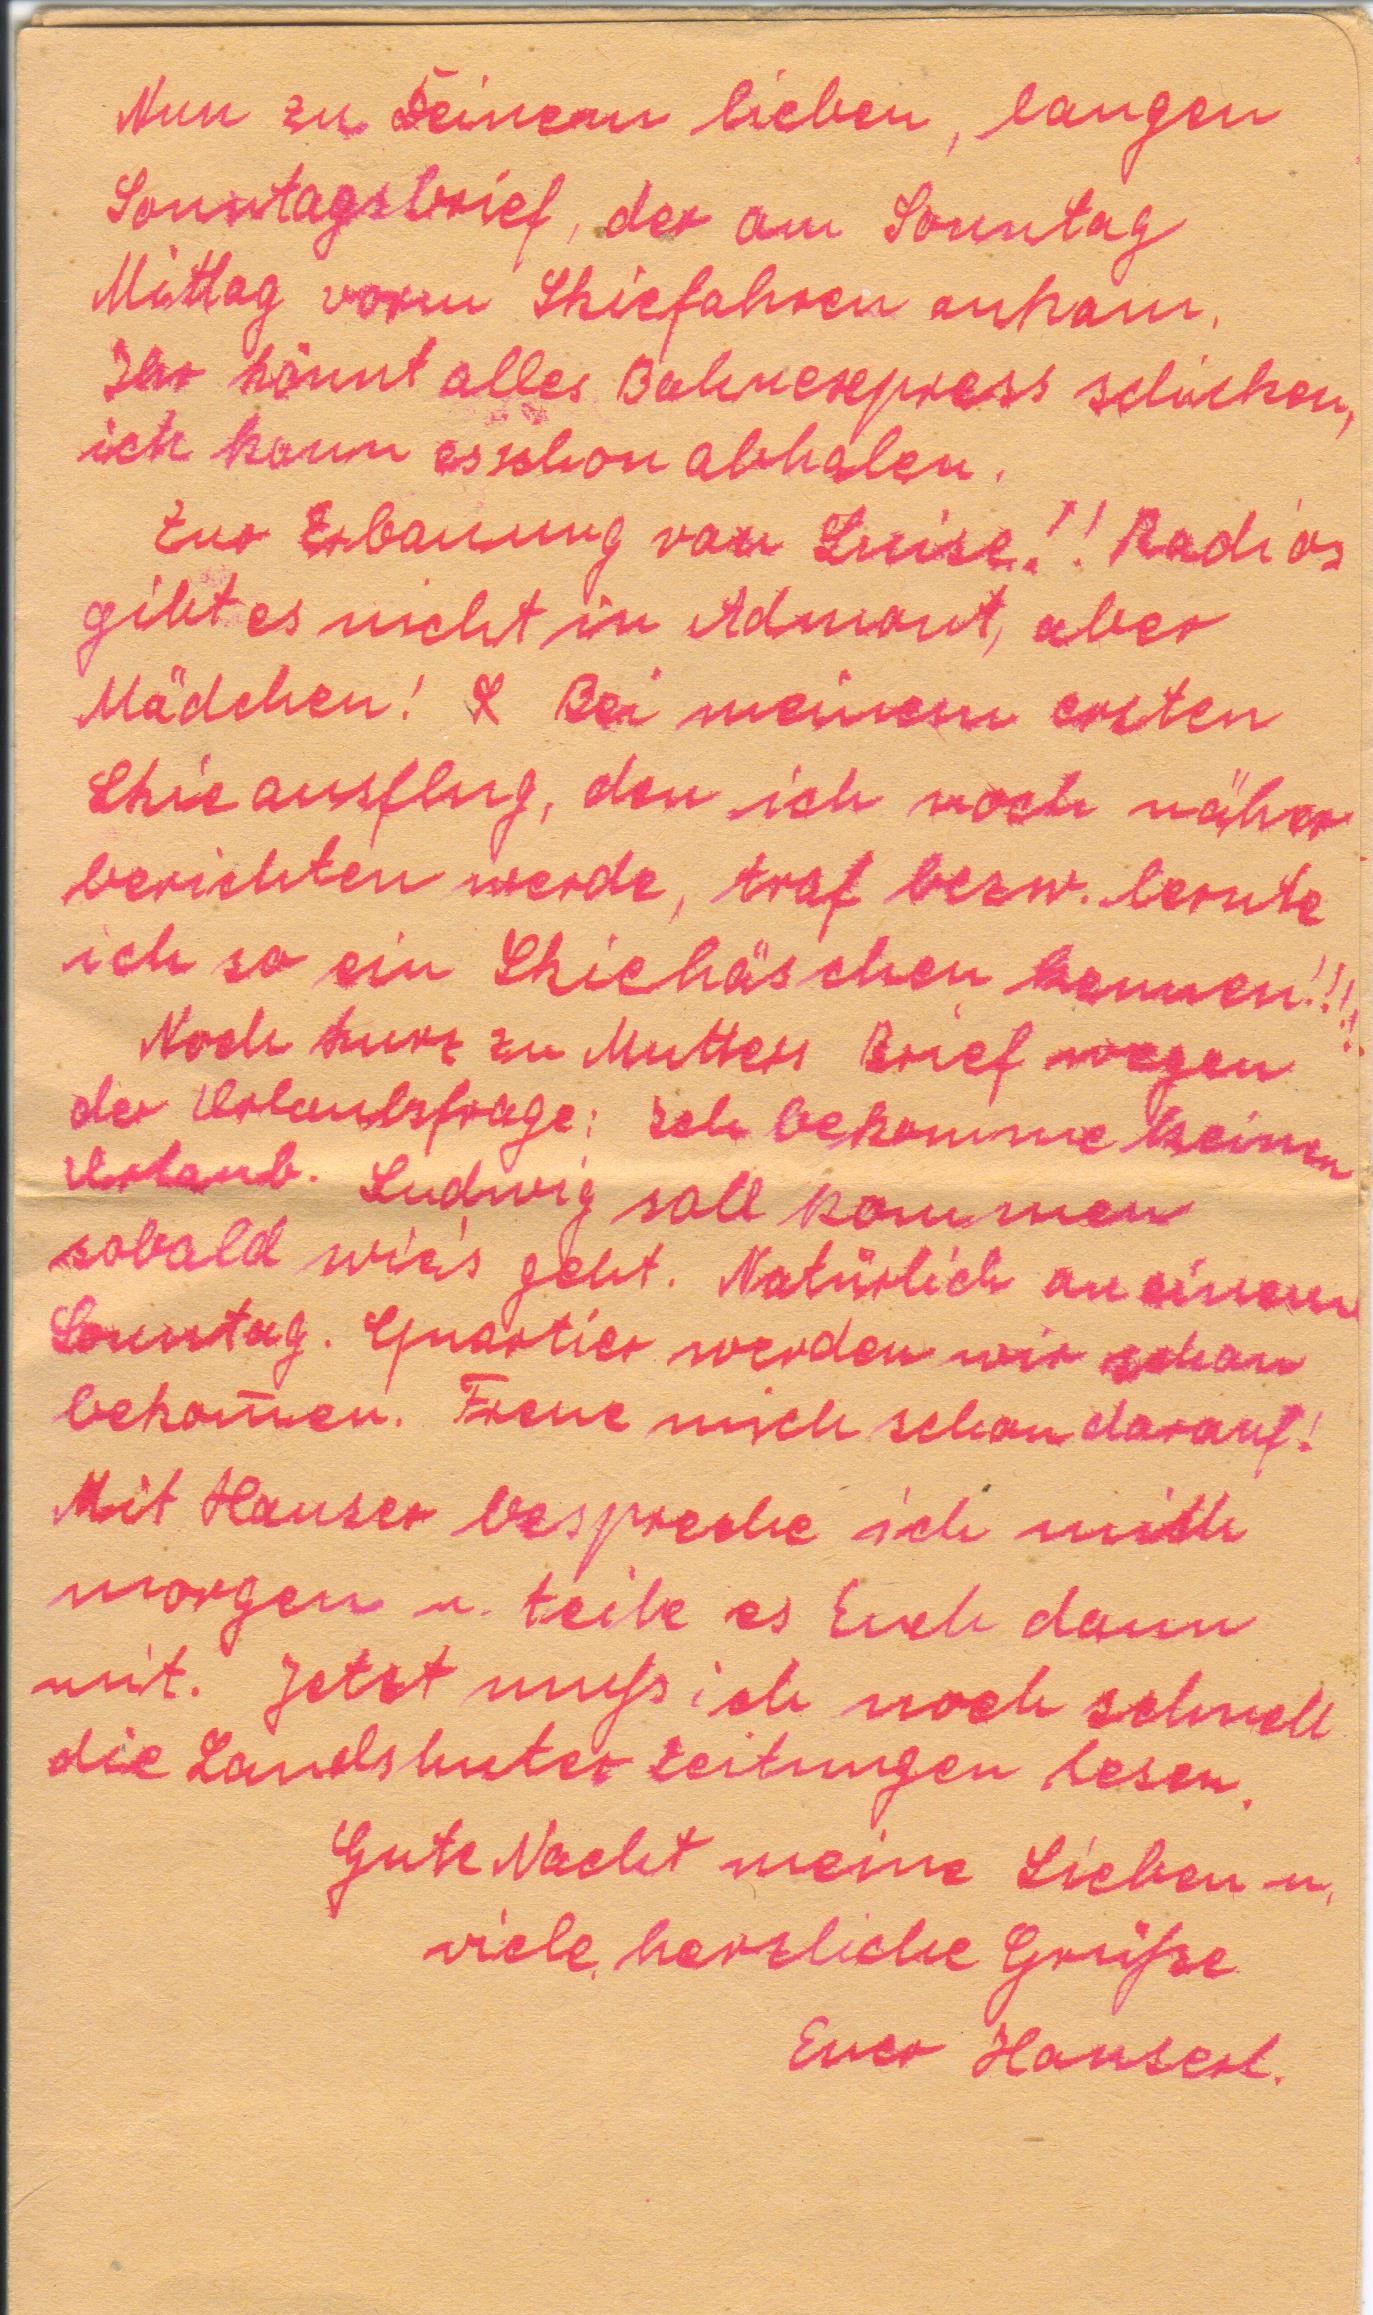 Nun zu Deinem lieben, langen
Sonntagsbrief, der am Sonntag
Mittag vorm Skiefahren ankam.
Ihr könnt alles Bahnexpress schicken,
ich kann es schon abholen.
Zur Erbauung von Luise!! Radios
gibt es nicht in Admont, aber
Mädchen! Bei meinem ersten
Skieausflug, den ich noch näher
berichten werde, traf bezw. lernte
ich so ein Skiehäschen kennen!!!!!
Noch kurz zu Mutters Brief wegen
der Urlaubsfrage: Ich bekomme keinen
Urlaub. Ludwig soll kommen
sobald wie's geht. Natürlich an einem
Sonntag. Quartier werden wir schon
bekom̄en. Freue mich schon darauf!
Mit Hauser bespreche ich mich
morgen u. teile es Euch dann
mit. Jetzt muß ich noch schnell
die Landshuter Zeitungen lesen.
Gute Nacht meine Lieben u.
viele, herzliche Grüße
Euer Hanserl.